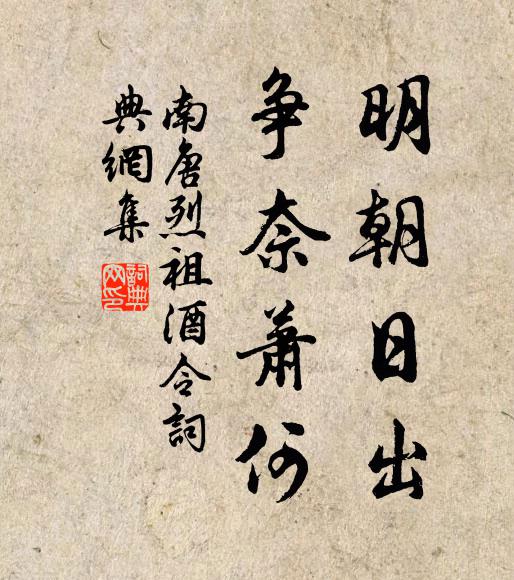 明朝日出
争奈蕭何
南唐烈祖酒令詞
典網集
詞典網印